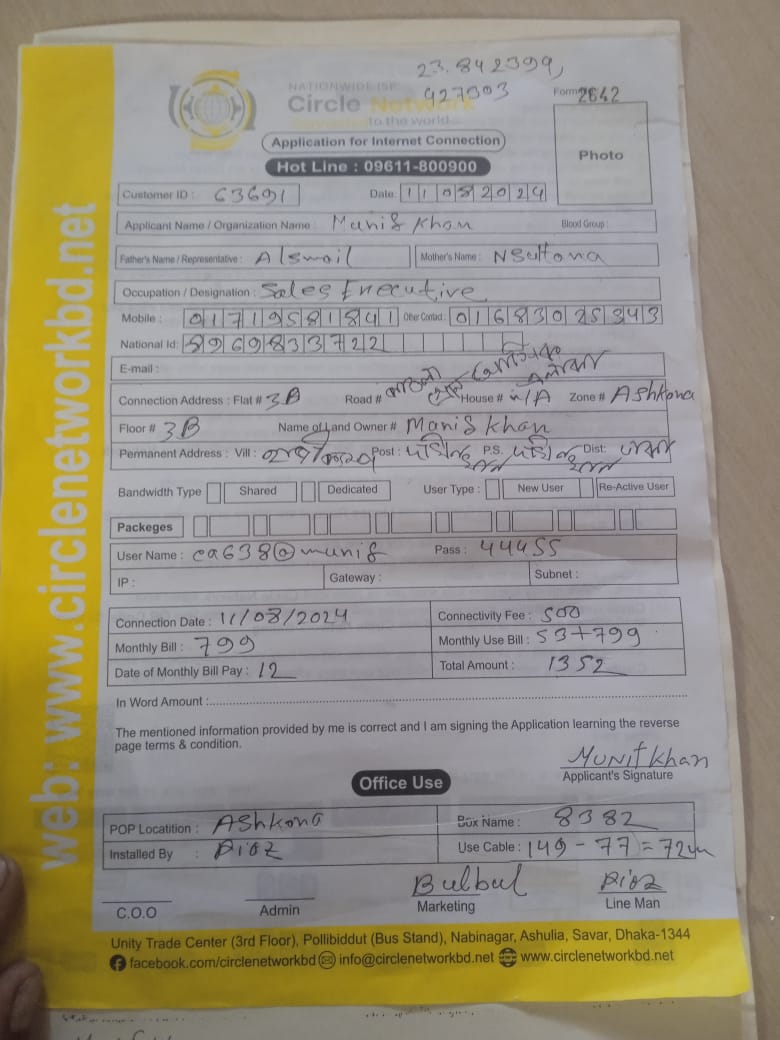 23.842399,
927303
NATIONWIDE ISP
Circle Network
Connecting to the world...
Form 2642
Application for Internet Connection
Photo
Hot Line : 09611-800900
Customer ID : 63691 Date: 11082024
Applicant Name / Organization Name : Munif Khan Blood Group :
Father's Name / Representative : Alsmail Mother's Name : NSultana
Occupation / Designation : Sales Executive
Mobile : 01719581841 Other Contact : 01683025343
National Id: 5969833722
E-mail :
Connection Address : Flat # 3B Road # House # n/A Zone # Ashkona
Floor # 3B Name of Land Owner # Munif khan
Permanent Address : Vill : Post : P.S. Dist:
Bandwidth Type Shared Dedicated User Type : New User Re-Active User
Packeges
User Name : ca638@munif Pass : 44455
IP : Gateway : Subnet :
Connection Date : 11/08/2024 Connectivity Fee : 500
Monthly Bill : 799 Monthly Use Bill : 53+799
Date of Monthly Bill Pay : 12 Total Amount : 1352
In Word Amount :
The mentioned information provided by me is correct and I am signing the Application learning the reverse
page terms & condition.
Munif khan
Applicant's Signature
Office Use
POP Locatition : Ashkona Box Name : 8382
Installed By : Rioz Use Cable : 149 - 77 = 72m
Bulbul Rioz
C.O.O Admin Marketing Line Man
Unity Trade Center (3rd Floor), Pollibiddut (Bus Stand), Nabinagar, Ashulia, Savar, Dhaka-1344
facebook.com/circlenetworkbd info@circlenetworkbd.net www.circlenetworkbd.net
web: www.circlenetworkbd.net